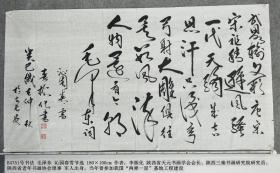 武略输文采唐宗
宋祖稍逊风骚
一代天骄成吉
思汗只识弯
弓射大雕俱往
矣数风流
人物还看今
朝 毛泽东词
沁园春 雪
B4751号书法 毛泽东 沁园春雪字选 180×100cm 作者:李振化 陕西省天元书画学会会长、陕西三秦书画研究院研究员、
陕西省老年书画协会理事 军人出身,当年曾参加我国"两弹一星"基地工程建设